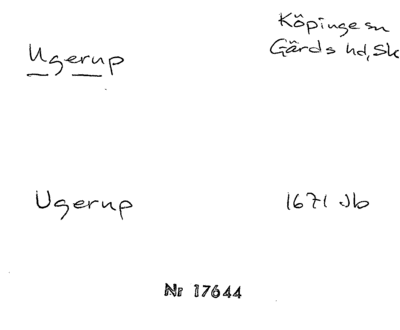 Ugerup
Köpinge sn
Gärds hd, Sk
Ugerup
1671 Jb
Nr 17644